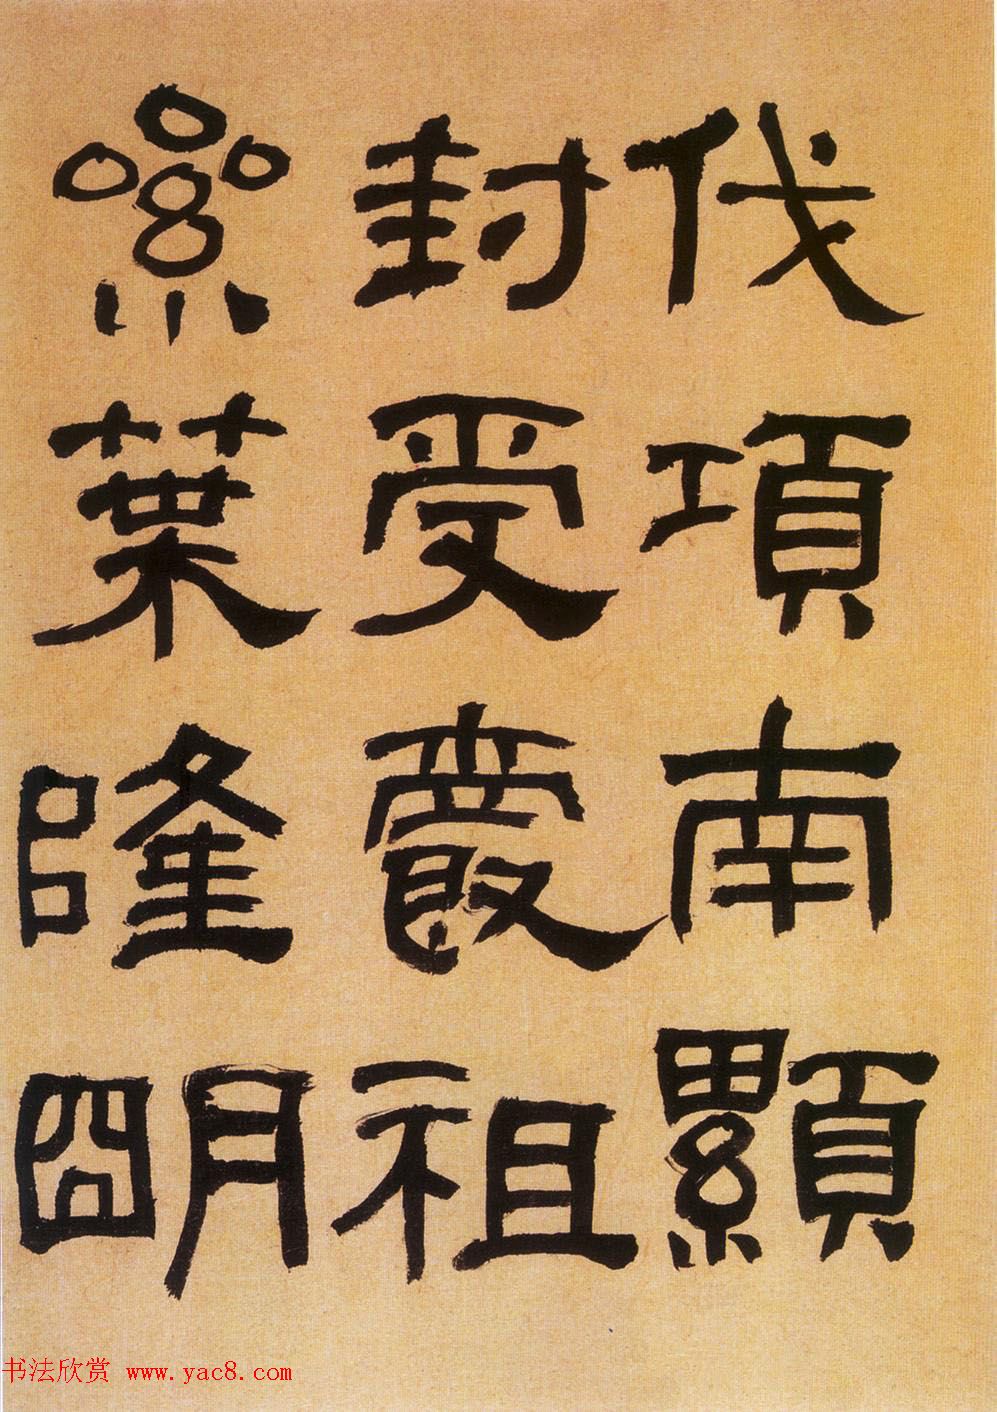 伐項南顯
封受慶祖
纍葉隆朙
书法欣赏 www.yac8.com